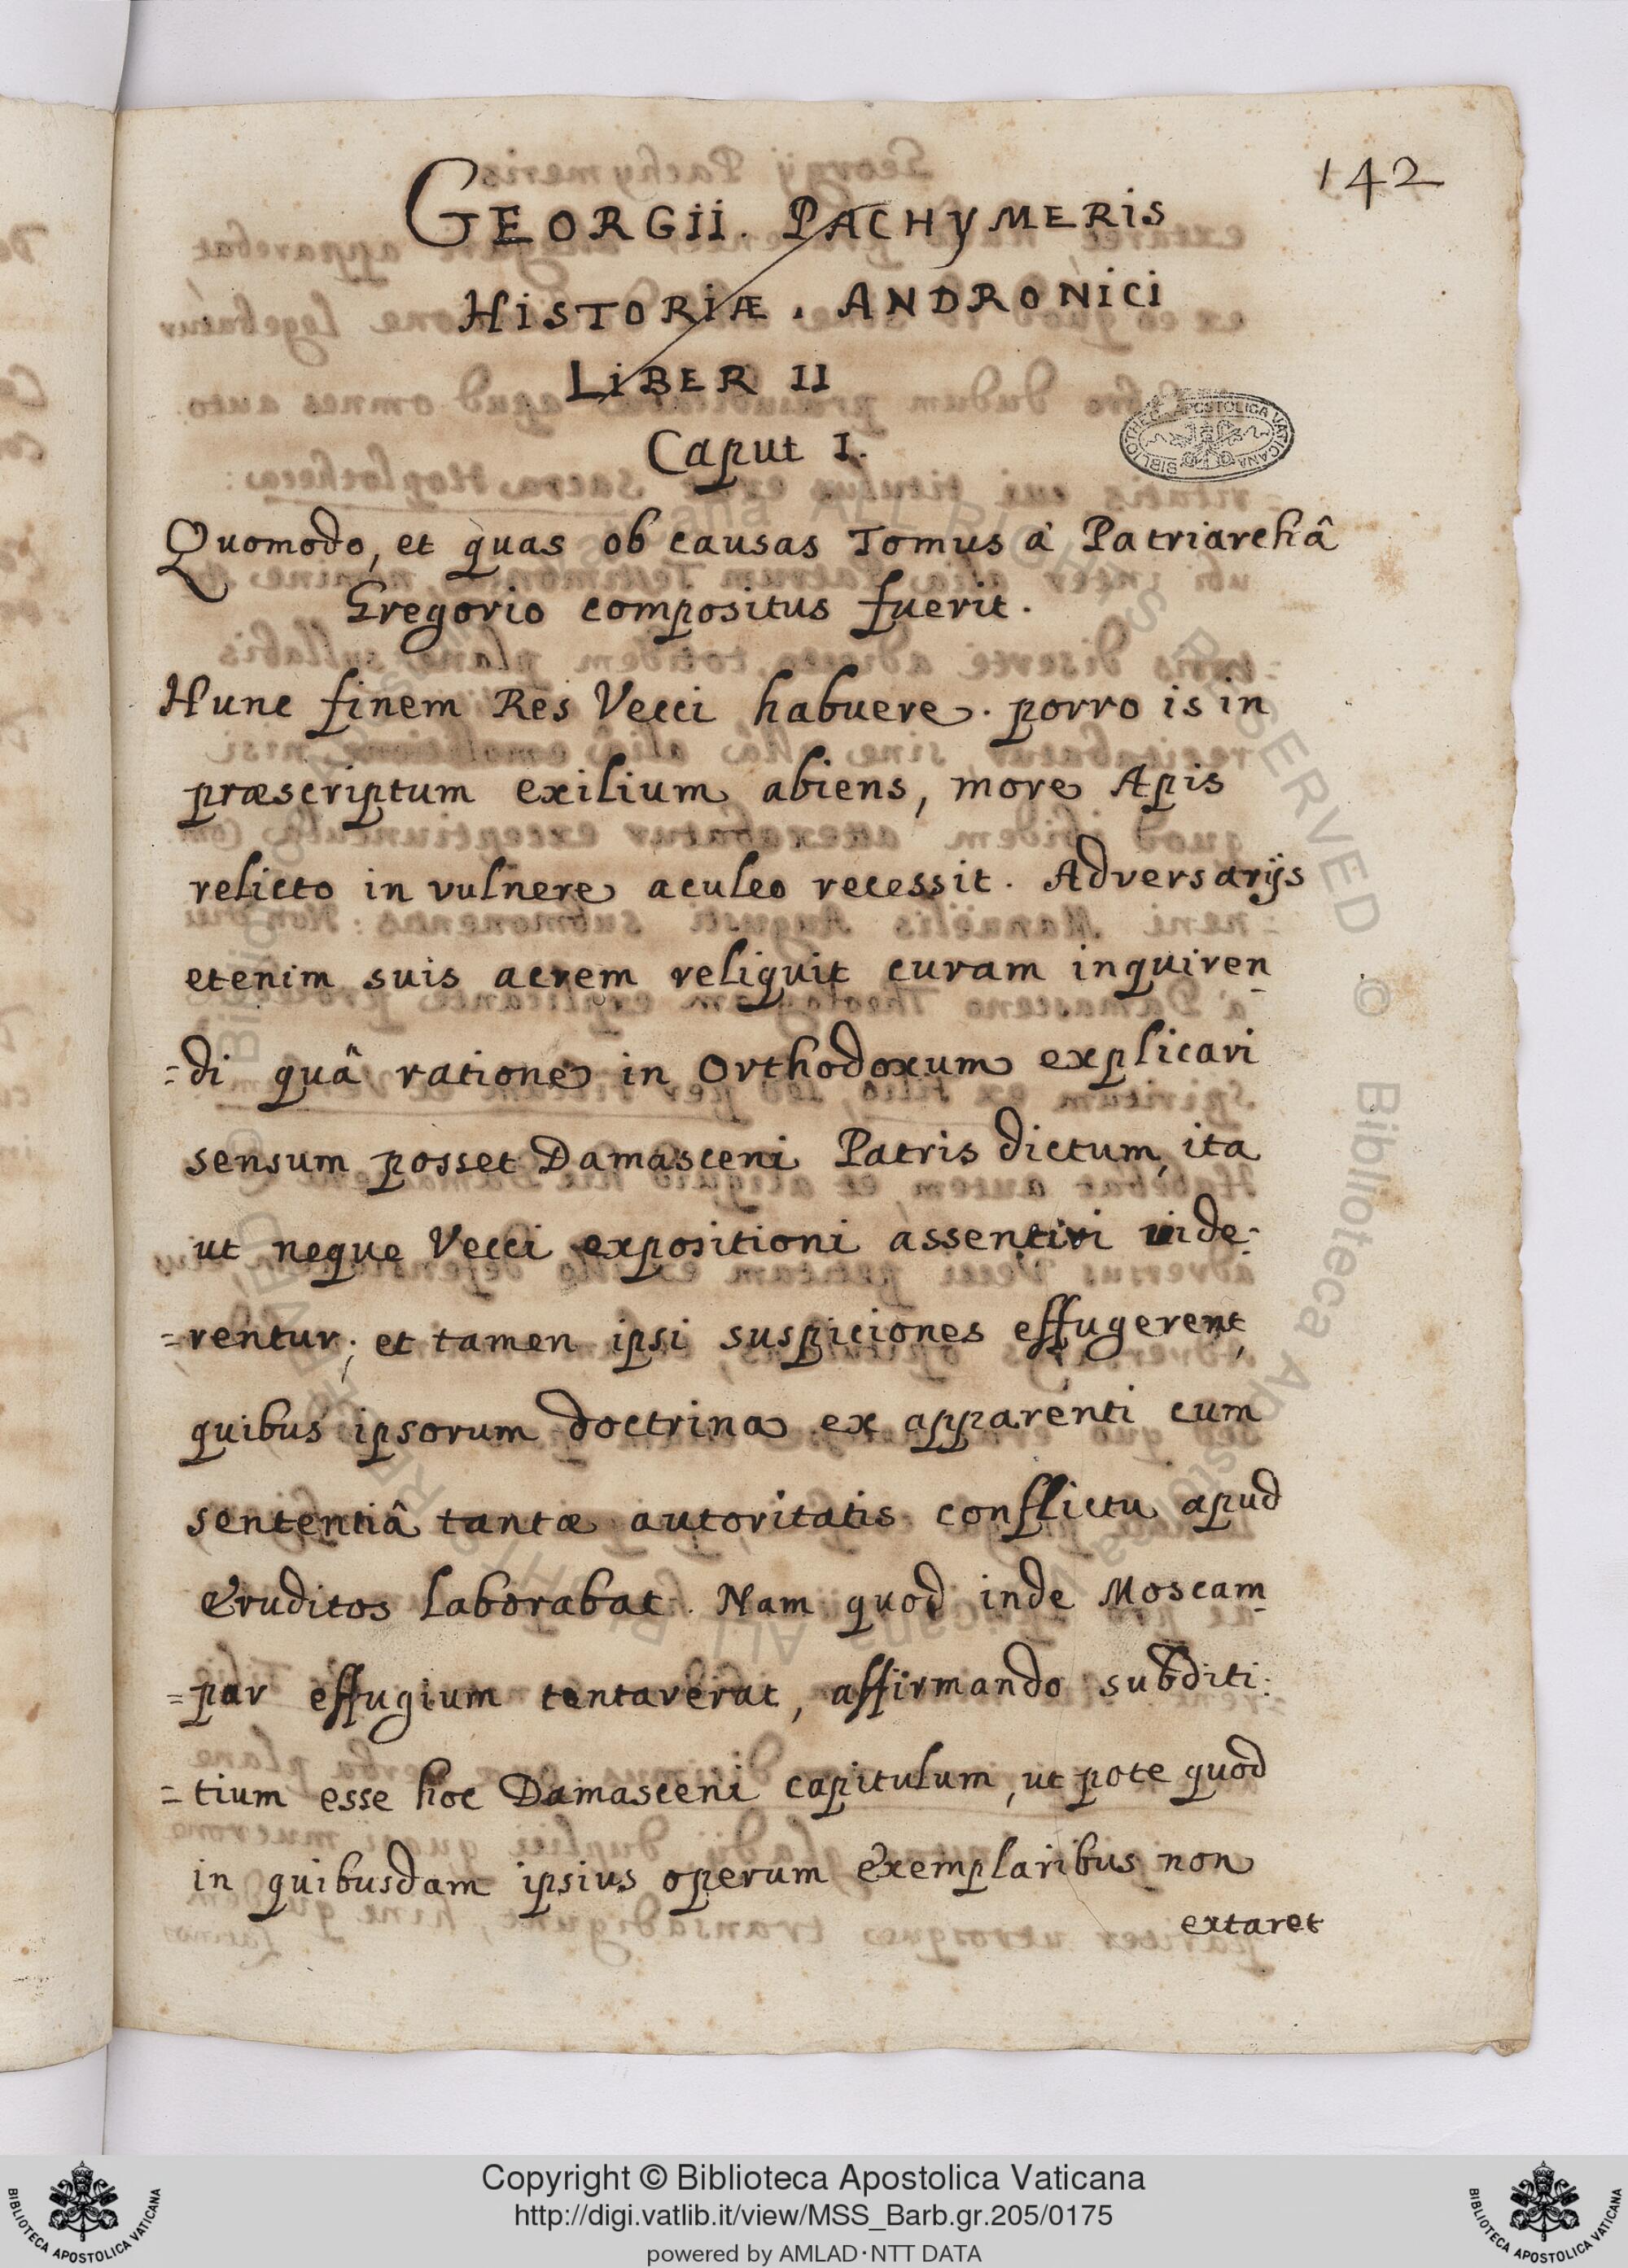 142
GEORGII. PACHYMERIS
HISTORIÆ. ANDRONICI
LIBER II
Caput I.
Quomodo, et quas ob causas Tomus à Patriarchâ
Gregorio compositus fuerit.
Hunc finem Res Vecci habuere. porro is in
præscriptum exilium abiens, more Apis
relicto in vulnere aculeo recessit. Adversarijs
etenim suis acrem reliquit curam inquiren
=di quâ ratione in Orthodoxum explicari
sensum posset Damasceni Patris dictum, ita
ut neque Vecci expositioni assentiri vide=
=rentur; et tamen ipsi suspiciones effugerent,
quibus ipsorum doctrina ex apparenti cum
sententiâ tantæ autoritatis conflictu apud
eruditos laborabat. Nam quod inde Moscam
=par effugium tentaverat, affirmando subditi=
=tium esse hoc Damasceni capitulum, ut pote quod
in quibusdam ipsius operum exemplaribus non
extaret
BIBLIOTHEC. APOSTOLICA VATICANA
Copyright © Biblioteca Apostolica Vaticana
http://digi.vatlib.it/view/MSS_Barb.gr.205/0175
powered by AMLAD·NTT DATA
BIBLIOTECA APOSTOLICA VATICANA
BIBLIOTECA APOSTOLICA VATICANA